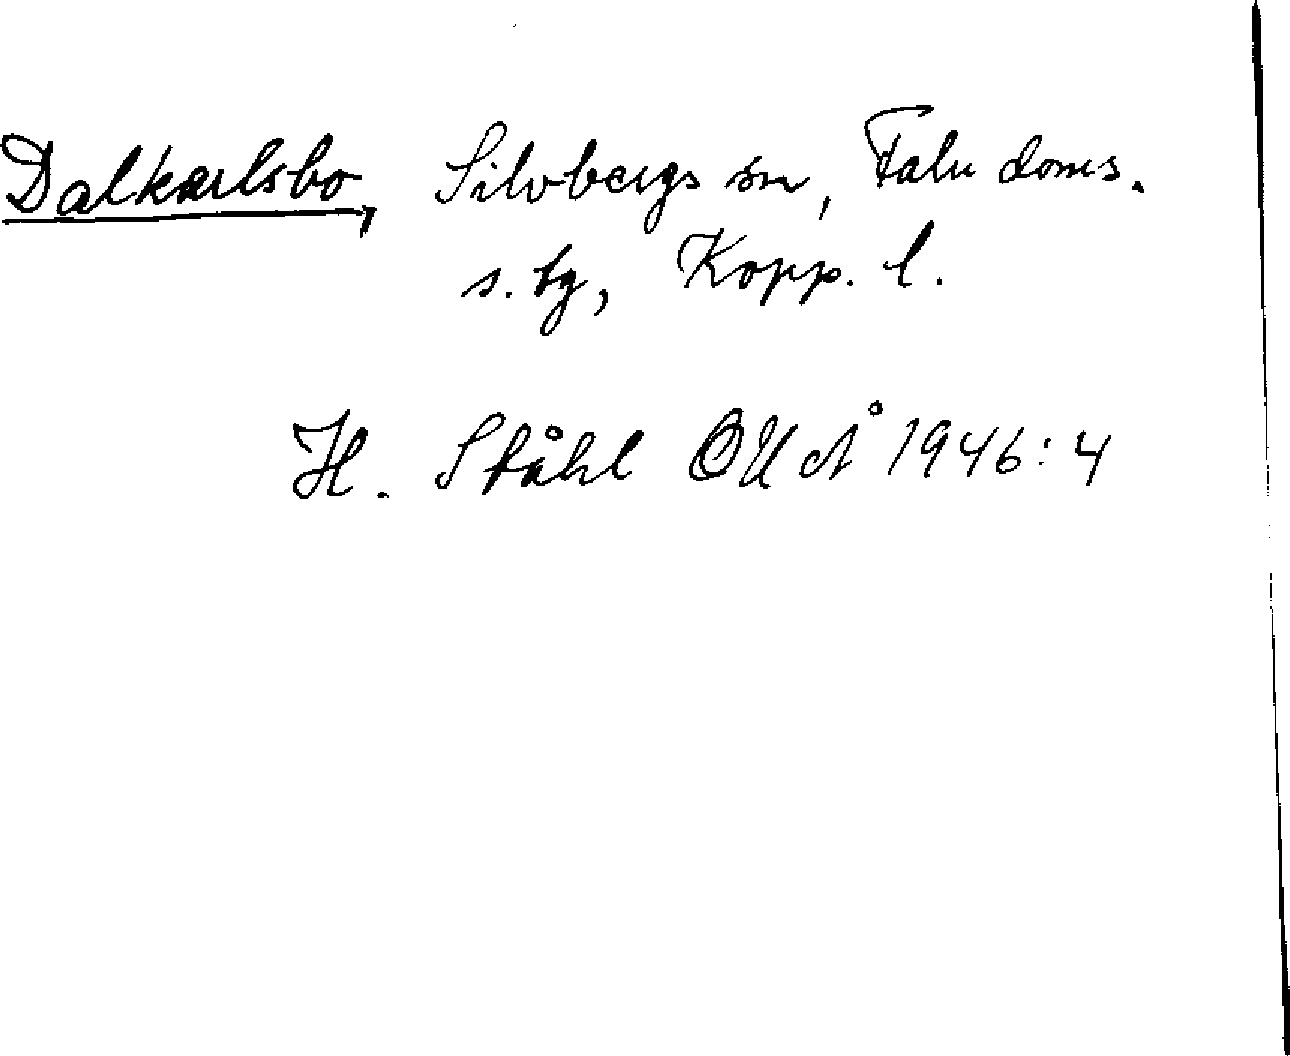 Dalkarlsbo, Silvbergs sn, Falu doms.
s. tg, Kopp. l.
H. Ståhl OUÅ 1946:4